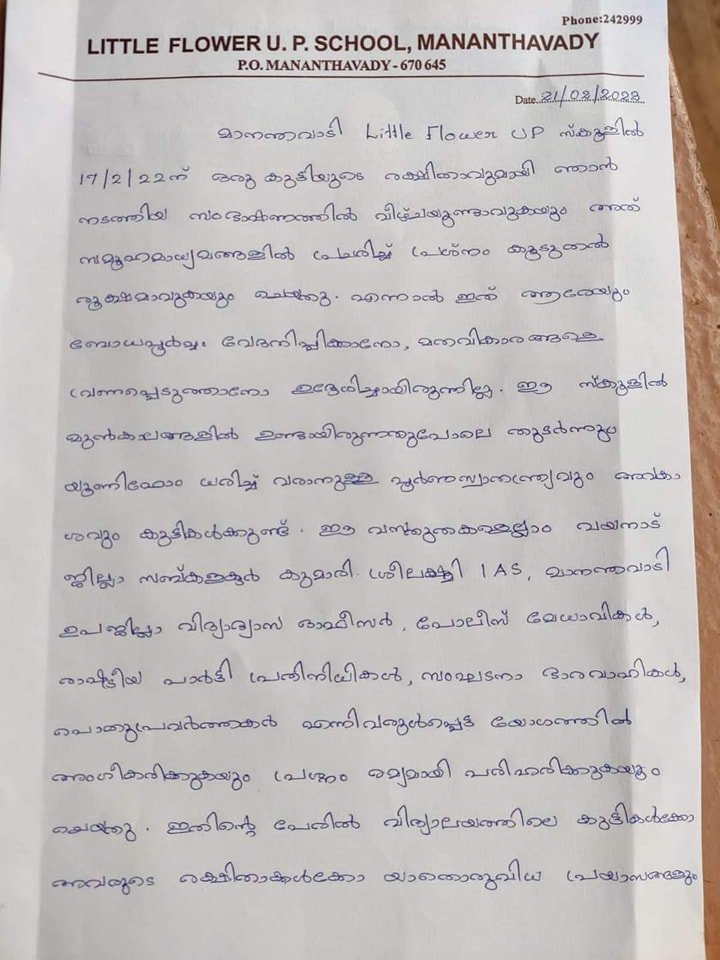 Phone:242999
LITTLE FLOWER U. P. SCHOOL, MANANTHAVADY
P.O. MANANTHAVADY - 670 645
Date 21/02/2022
മാനന്തവാടി Little Flower UP സ്കൂളിൽ
17/2/22ന് ഒരു കുട്ടിയുടെ രക്ഷിതാവുമായി ഞാൻ
നടത്തിയ സംഭാഷണത്തിൽ വീഴ്ചയുണ്ടാവുകയും അത്
സമൂഹമാധ്യമങ്ങളിൽ പ്രചരിച്ച് പ്രശ്നം കൂടുതൽ
രൂക്ഷമാവുകയും ചെയ്തു. എന്നാൽ ഇത് ആരേയും
ബോധപൂർവ്വം വേദനിപ്പിക്കാനോ, മതവികാരങ്ങളെ
വ്രണപ്പെടുത്താനോ ഉദ്ദേശിച്ചായിരുന്നില്ല. ഈ സ്കൂളിൽ
മുൻകാലങ്ങളിൽ ഉണ്ടായിരുന്നതുപോലെ തുടർന്നും
യൂണിഫോം ധരിച്ച് വരാനുള്ള പൂർണസ്വാതന്ത്ര്യവും അവകാ
ശവും കുട്ടികൾക്കുണ്ട്. ഈ വസ്തുതകളെല്ലാം വയനാട്
ജില്ലാ സബ്കളക്ടർ കുമാരി ശ്രീലക്ഷ്മി IAS, മാനന്തവാടി
ഉപജില്ലാ വിദ്യാഭ്യാസ ഓഫീസർ, പോലീസ് മേധാവികൾ,
രാഷ്ട്രീയ പാർട്ടി പ്രതിനിധികൾ, സംഘടനാ ഭാരവാഹികൾ,
പൊതുപ്രവർത്തകർ എന്നിവരുൾപ്പെട്ട യോഗത്തിൽ
അംഗീകരിക്കുകയും പ്രശ്നം രമ്യമായി പരിഹരിക്കുകയും
ചെയ്തു. ഇതിന്റെ പേരിൽ വിദ്യാലയത്തിലെ കുട്ടികൾക്കോ
അവരുടെ രക്ഷിതാക്കൾക്കോ യാതൊരുവിധ പ്രയാസങ്ങളും